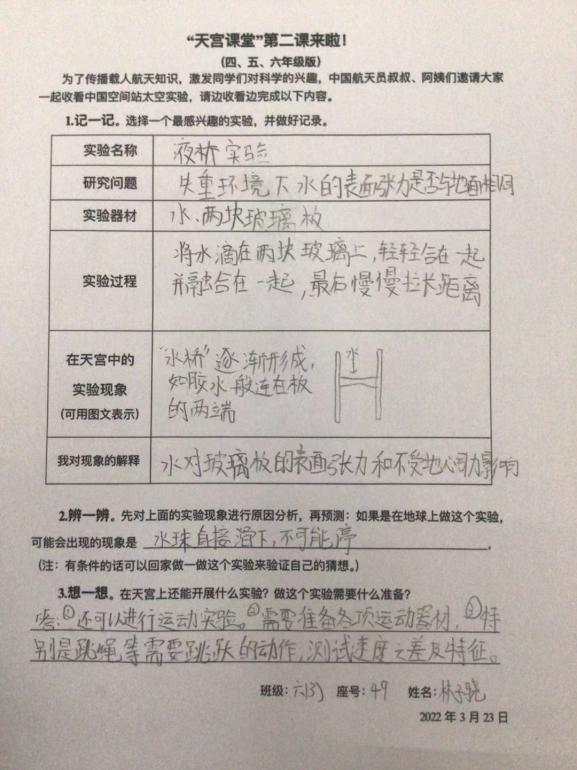 “天宫课堂”第二课来啦！
（四、五、六年级版）
为了传播载人航天知识，激发同学们对科学的兴趣，中国航天员叔叔、阿姨们邀请大家
一起收看中国空间站太空实验，请边收看边完成以下内容。
1.记一记。选择一个最感兴趣的实验，并做好记录。
实验名称 液桥实验
研究问题 失重环境下水的表面张力是否与地面相同
实验器材 水、两块玻璃板
实验过程
将水滴在两块玻璃上，轻轻合在一起
并融合在一起，最后慢慢拉长距离
在天宫中的
实验现象
（可用图文表示）
“水桥”逐渐形成，
如胶水般连在板
的两端
水
我对现象的解释 水对玻璃板的表面张力和不受地心引力影响
2.辨一辨。先对上面的实验现象进行原因分析，再预测：如果是在地球上做这个实验，
可能会出现的现象是 水珠直接滑下，不可能停 。
（注：有条件的话可以回家做一做这个实验来验证自己的猜想。）
3.想一想。在天宫上还能开展什么实验？做这个实验需要什么准备？
答：①还可以进行运动实验。②需要准备各项运动器材，③特
别是跳绳等需要跳跃的动作，测试速度之差及特征。
班级：六(3) 座号：49 姓名：林子骁
2022 年 3 月 23 日